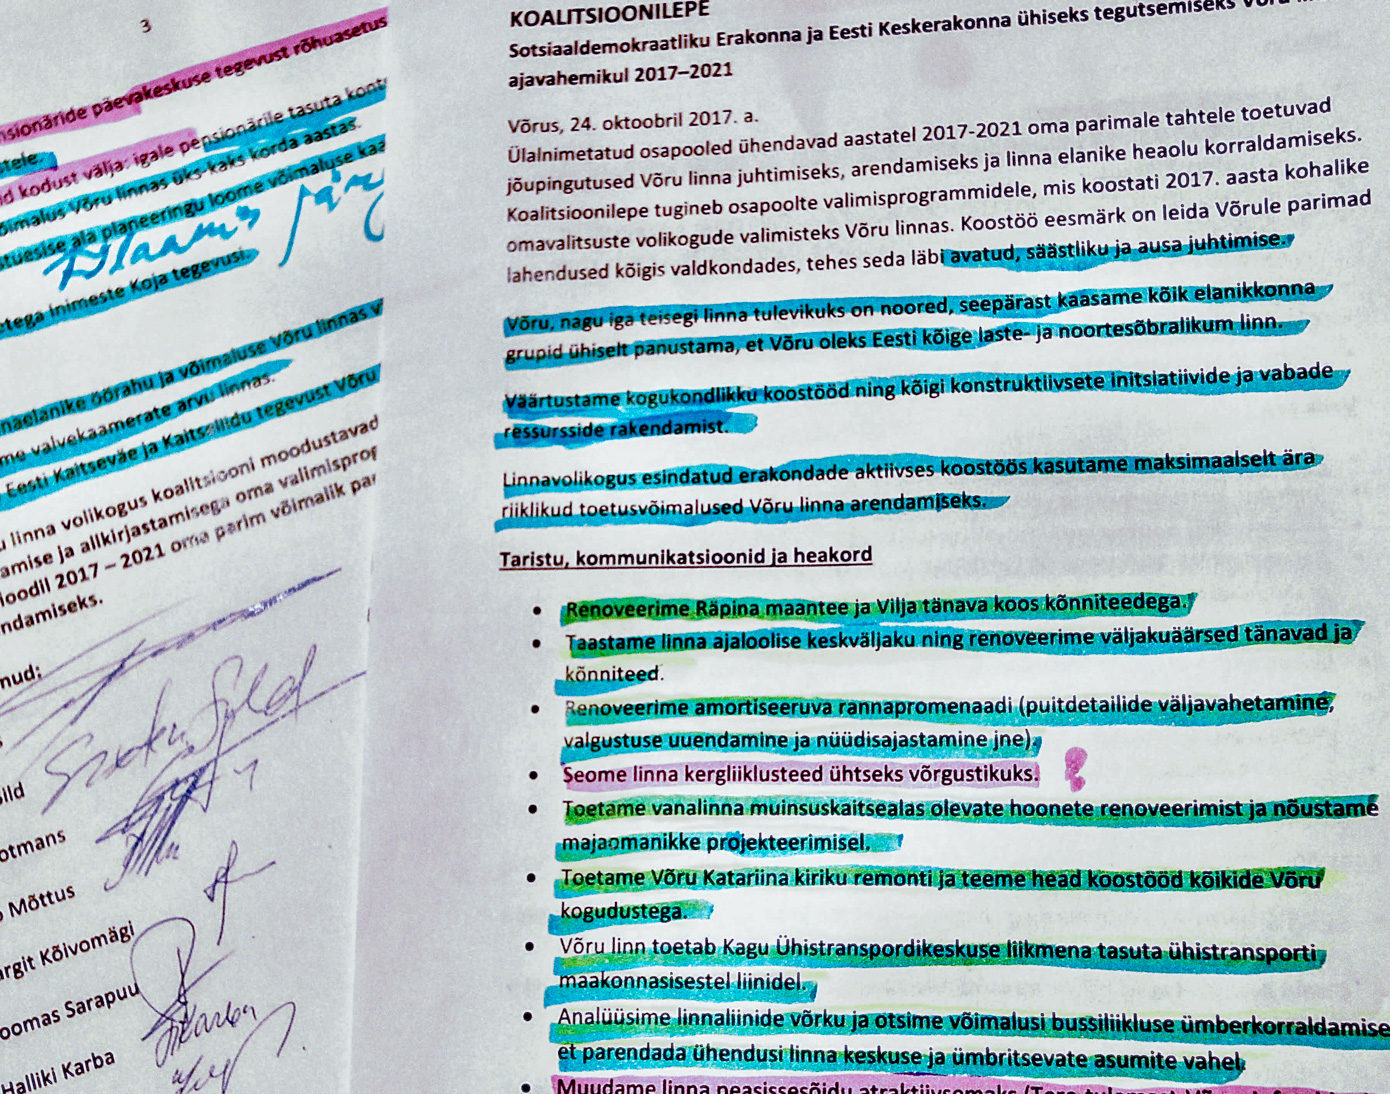 3
nsionäride päevakeskuse tegevust rõhuasetus
stele.
id kodust välja: igale pensionärile tasuta kont
õimalus Võru linnas üks-kaks korda aastas.
stuesise ala planeeringu loome võimaluse kaa
etega Inimeste Koja tegevusi.
naelanike öörahu ja võimaluse Võru linnas v
me valvekaamerate arvu linnas.
Eesti Kaitseväe ja Kaitseliidu tegevust Võru
u linna volikogus koalitsiooni moodustavad
amise ja allkirjastamisega oma valimisprog
ioodil 2017 – 2021 oma parim võimalik pa
ndamiseks.
nud:
ild
otmans
Mõttus
argit Kõivomägi
oomas Sarapuu
Halliki Karba
KOALITSIOONILEPE
Sotsiaaldemokraatliku Erakonna ja Eesti Keskerakonna ühiseks tegutsemiseks Võru
ajavahemikul 2017–2021
Võrus, 24. oktoobril 2017. a.
Ülalnimetatud osapooled ühendavad aastatel 2017-2021 oma parimale tahtele toetuvad
jõupingutused Võru linna juhtimiseks, arendamiseks ja linna elanike heaolu korraldamiseks.
Koalitsioonilepe tugineb osapoolte valimisprogrammidele, mis koostati 2017. aasta kohalike
omavalitsuste volikogude valimisteks Võru linnas. Koostöö eesmärk on leida Võrule parimad
lahendused kõigis valdkondades, tehes seda läbi avatud, säästliku ja ausa juhtimise.
Võru, nagu iga teisegi linna tulevikuks on noored, seepärast kaasame kõik elanikkonna
grupid ühiselt panustama, et Võru oleks Eesti kõige laste- ja noortesõbralikum linn.
Väärtustame kogukondlikku koostööd ning kõigi konstruktiivsete initsiatiivide ja vabade
ressursside rakendamist.
Linnavolikogus esindatud erakondade aktiivses koostöös kasutame maksimaalselt ära
riiklikud toetusvõimalused Võru linna arendamiseks.
Taristu, kommunikatsioonid ja heakord
• Renoveerime Räpina maantee ja Vilja tänava koos kõnniteedega.
• Taastame linna ajaloolise keskväljaku ning renoveerime väljakuäärsed tänavad ja
kõnniteed.
• Renoveerime amortiseeruva rannapromenaadi (puitdetailide väljavahetamine,
valgustuse uuendamine ja nüüdisajastamine jne).
• Seome linna kergliiklusteed ühtseks võrgustikuks.
• Toetame vanalinna muinsuskaitsealas olevate hoonete renoveerimist ja nõustame
majaomanikke projekteerimisel.
• Toetame Võru Katariina kiriku remonti ja teeme head koostööd kõikide Võru
kogudustega.
• Võru linn toetab Kagu Ühistranspordikeskuse liikmena tasuta ühistransporti
maakonnasisestel liinidel.
• Analüüsime linnaliinide võrku ja otsime võimalusi bussiliikluse ümberkorraldamise
et parendada ühendusi linna keskuse ja ümbritsevate asumite vahel.
• Muudame linna peasissesõidu atraktiivsemaks